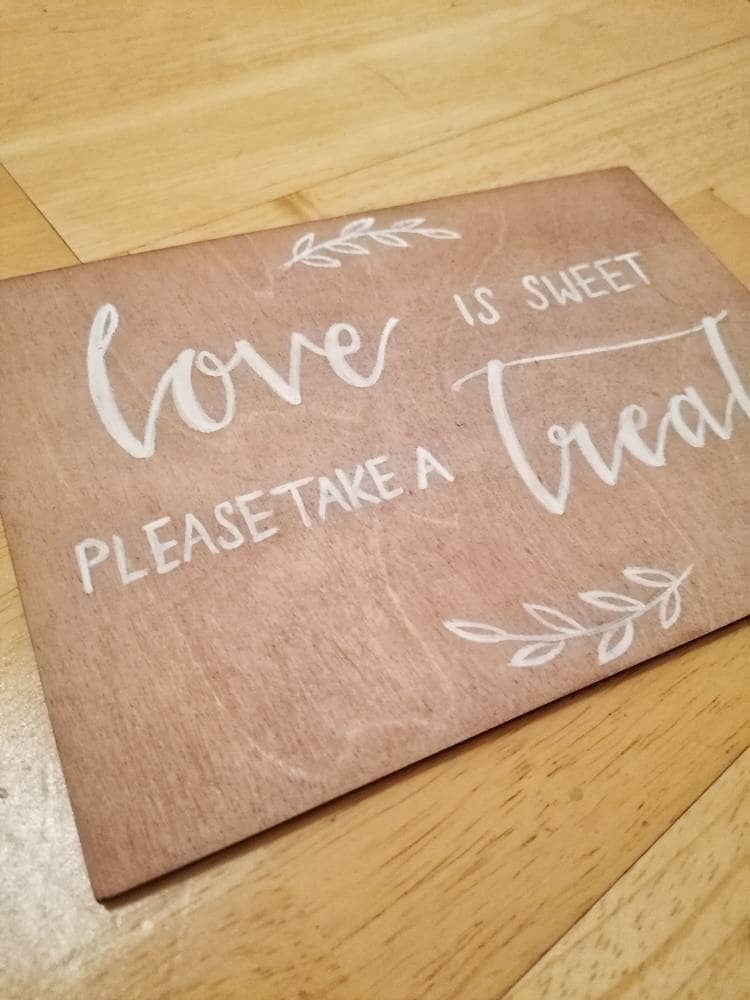 love IS SWEET
PLEASE TAKE A treat